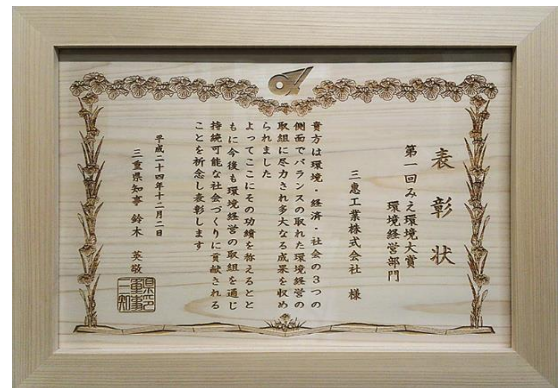 表彰状
第一回みえ環境大賞
環境経営部門
三恵工業株式会社 様
貴方は環境・経済・社会の3つの
側面でバランスの取れた環境経営の
取組に尽力され多大なる成果を収め
られました
よってここにその功績を称えるとと
もに今後も環境経営の取組を通じ
持続可能な社会づくりに貢献される
ことを祈念し表彰します
平成二十四年十二月二日
三重県知事 鈴木 英敬